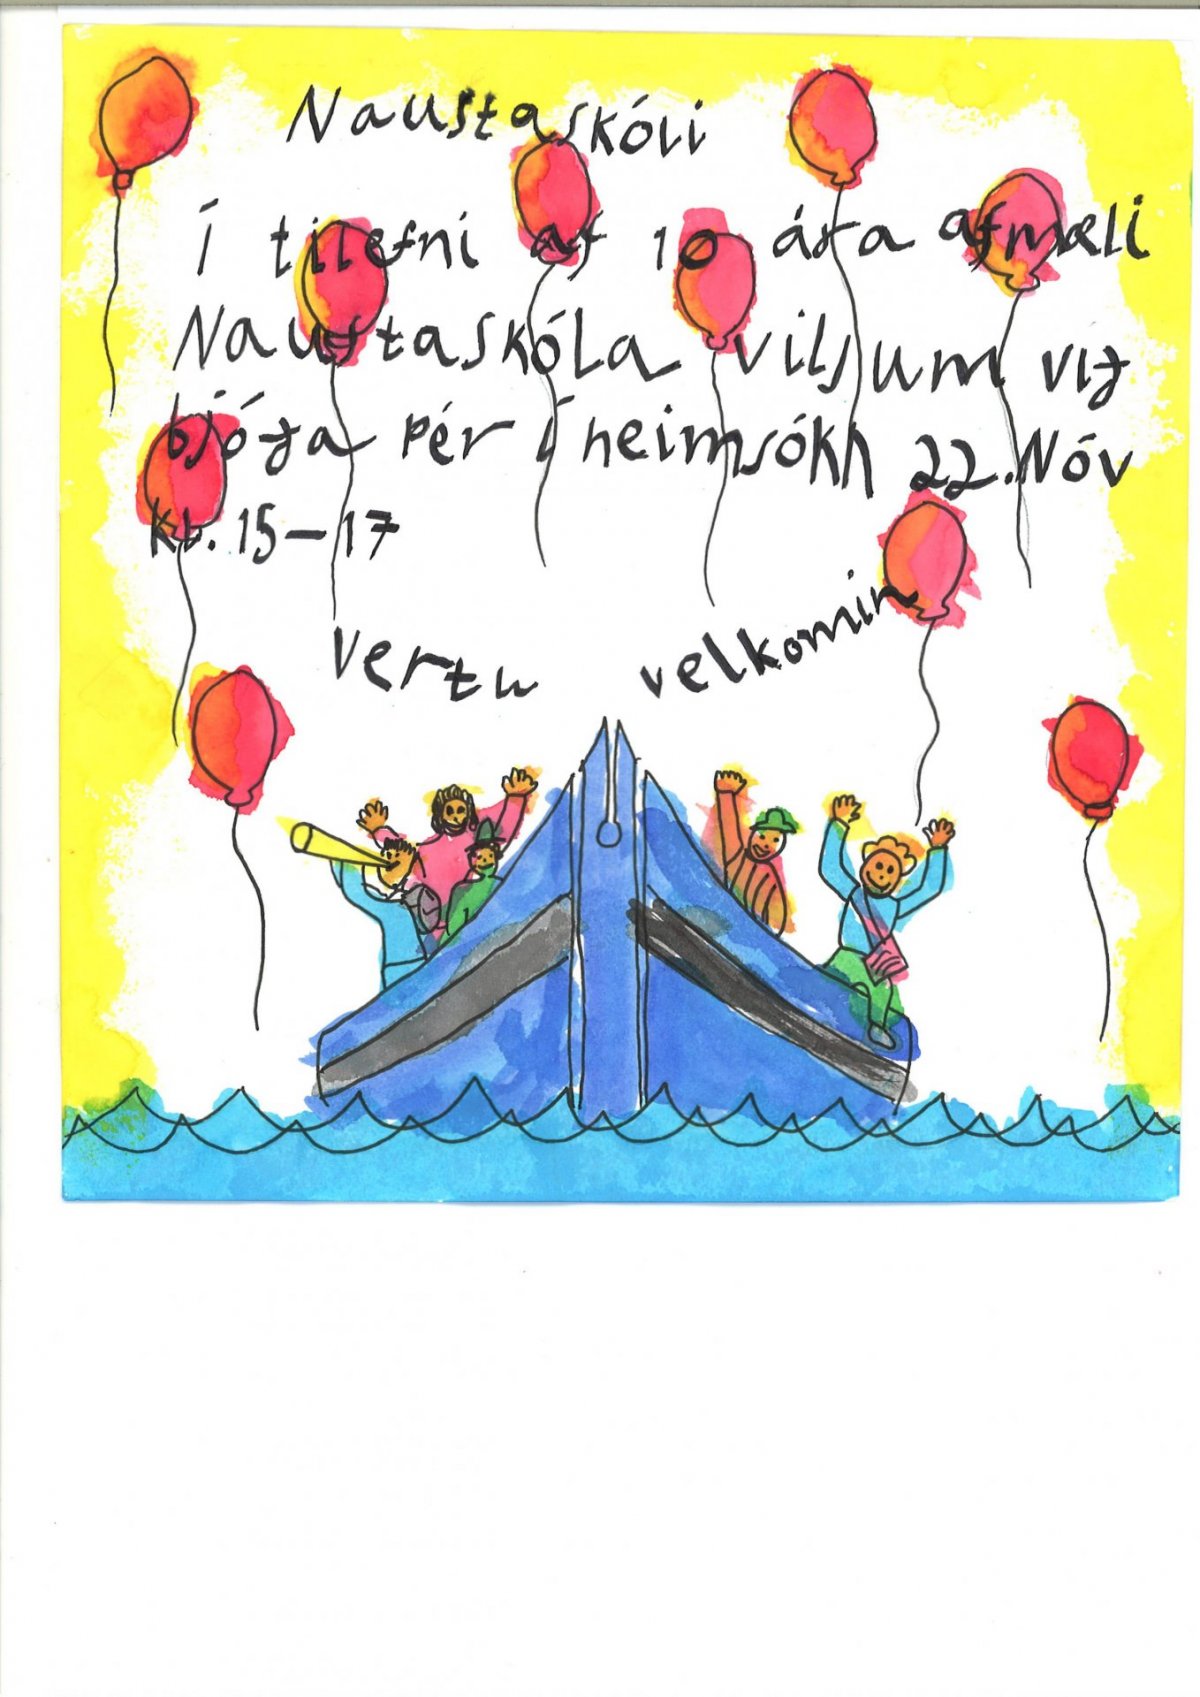 Naustaskóli
Í tilefni af 10 ára afmæli
Naustaskóla viljum við
bjóða þér í heimsókn 22. Nóv
kl. 15-17
Vertu velkomin